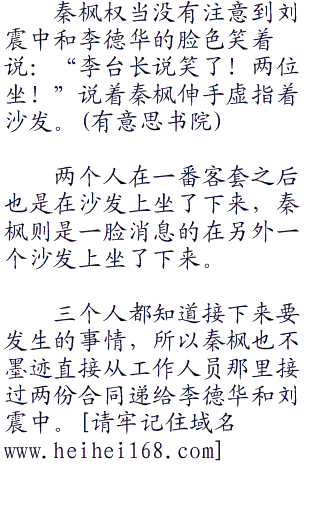 秦枫权当没有注意到刘
震中和李德华的脸色笑着
说：“李台长说笑了！两位
坐！”说着秦枫伸手虚指着
沙发。(有意思书院)
两个人在一番客套之后
也是在沙发上坐了下来，秦
枫则是一脸消息的在另外一
个沙发上坐了下来。
三个人都知道接下来要
发生的事情，所以秦枫也不
墨迹直接从工作人员那里接
过两份合同递给李德华和刘
震中。[请牢记住域名
www.heihei168.com]